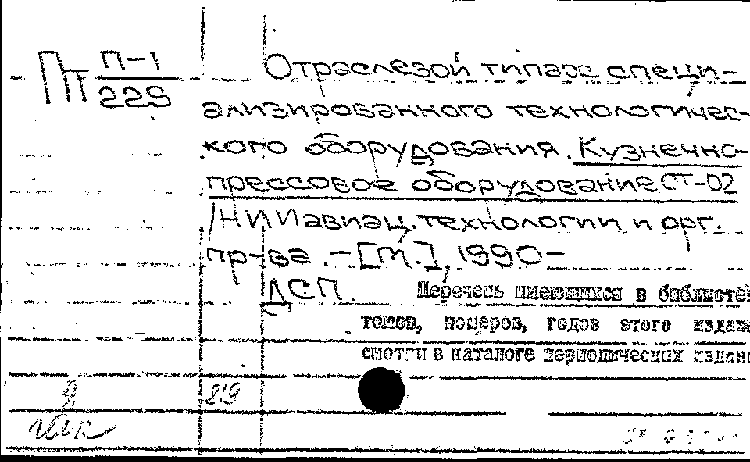 Пт П-1
229
Отраслевой типаж специ-
ализированного технологичес-
кого оборудования. Кузнечно-
прессовое оборудование СТ-02
/НИИ авиац. технологии и орг.
пр-ва. -[М.], 1990-
ДСП.
Перечень имеющихся в библиотек
томов, номеров, годов этого издан
смотри в каталоге периодических издани
9 819